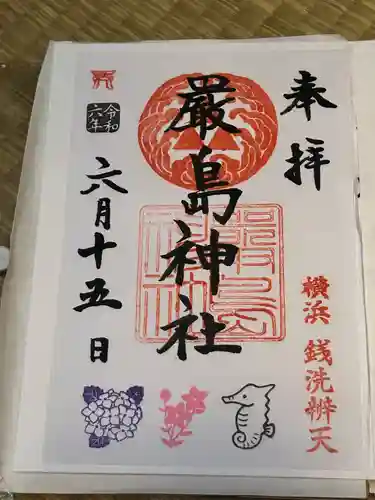 奉拝
横浜 銭洗辨天
厳島神社
令和六年
六月十五日